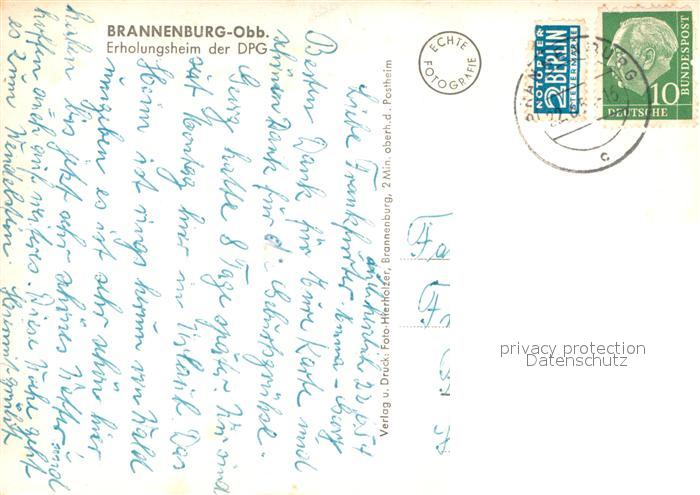 BRANNENBURG-Obb.
Erholungsheim der DPG
ECHTE
FOTOGRAFIE
NOTOPFER
2 BERLIN
STEUERMARKE
10
DEUTSCHE
BUNDESPOST
c
Verlag u. Druck: Foto-Hierholzer, Brannenburg, 2 Min. oberh. d. Postheim
22.6.54
Liebe Frankfurter
Besten Dank für Eure Karte und
schönen Dank für d. Geburtstagsgrüße.
8 Tage später. Wir sind
seit Montag hier in Urlaub. Das
Heim ist rings herum von Wald
umgeben es ist sehr schön hier
haben bis jetzt sehr schönes Wetter und
hoffen auch auf weiteres. Diese Woche geht
es zum Wendelstein.
Fa
privacy protection
Datenschutz